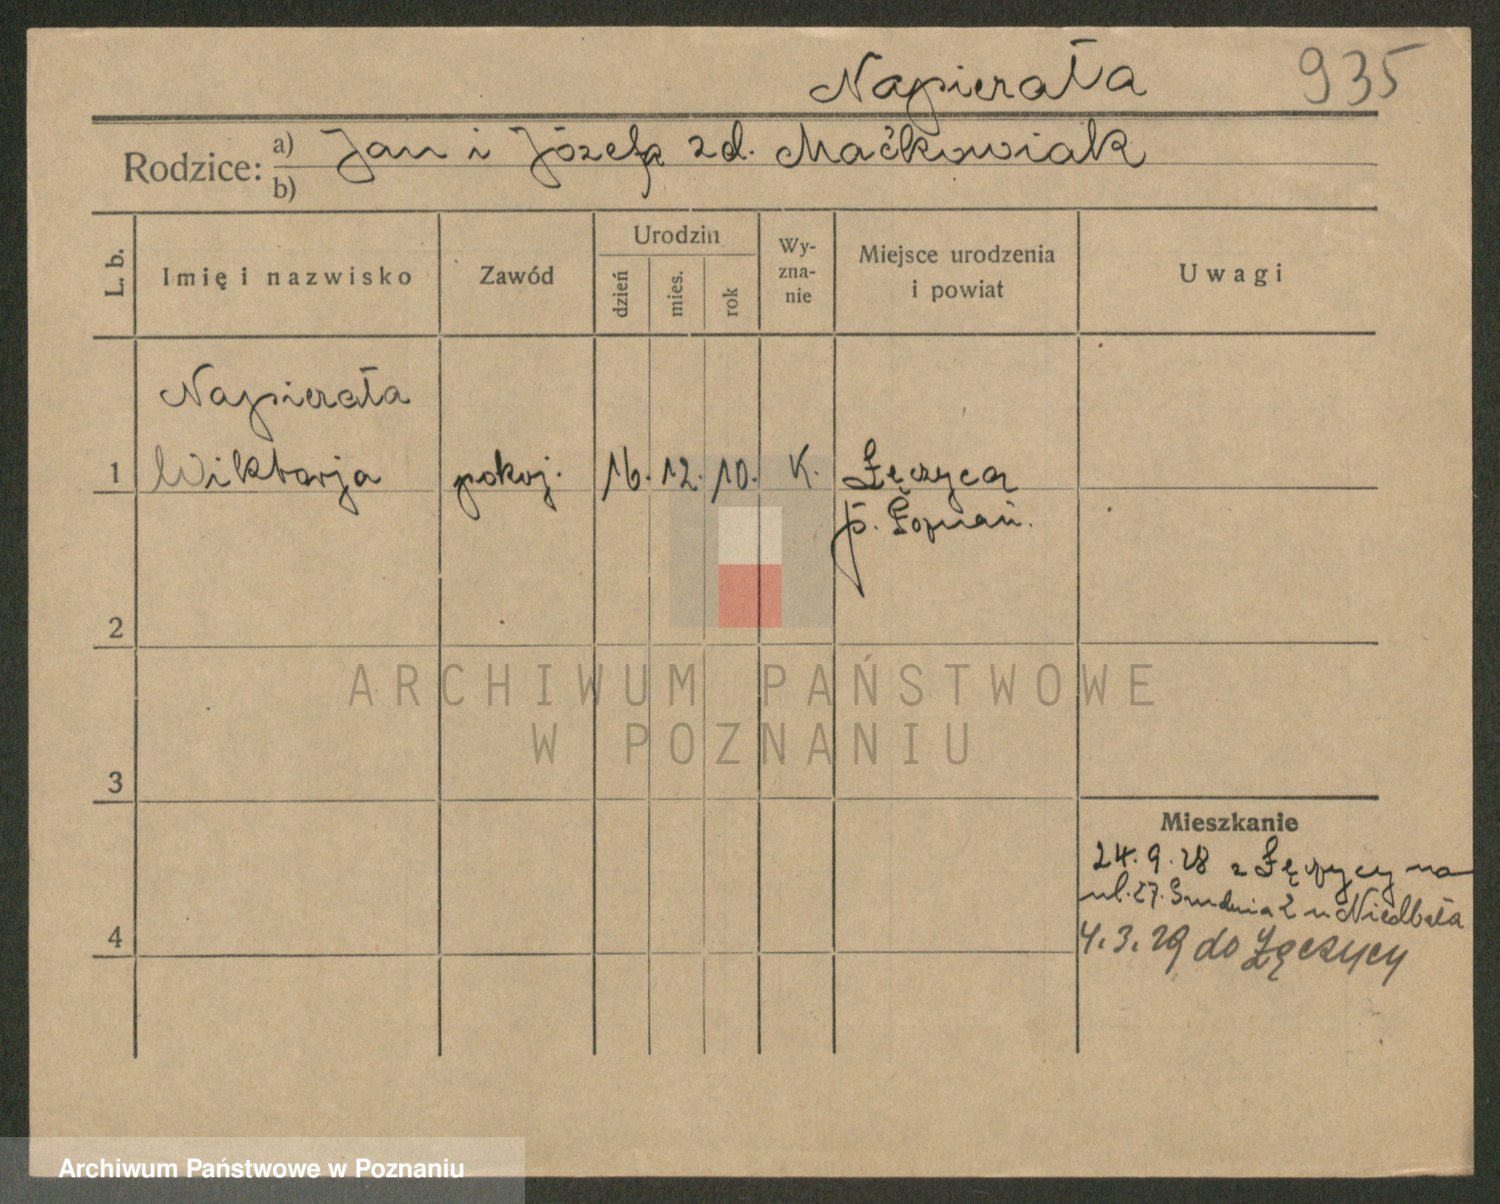 Napierała 935
Rodzice: a) Jan i Józefa zd. Maćkowiak
b)
L. b. Imię i nazwisko Zawód Urodzin dzień mies. rok Wyznanie Miejsce urodzenia i powiat Uwagi
Napierała
1 Wiktorja pokoj. 16. 12. 10. K. Łęczyca
p. Poznań.
2
ARCHIWUM PAŃSTWOWE
W POZNANIU
3
Mieszkanie
24.9.28 z Łęczycy na
ul. 27. Grudnia 2 u Niedbała
4 4.3.29 do Łęczycy
Archiwum Państwowe w Poznaniu